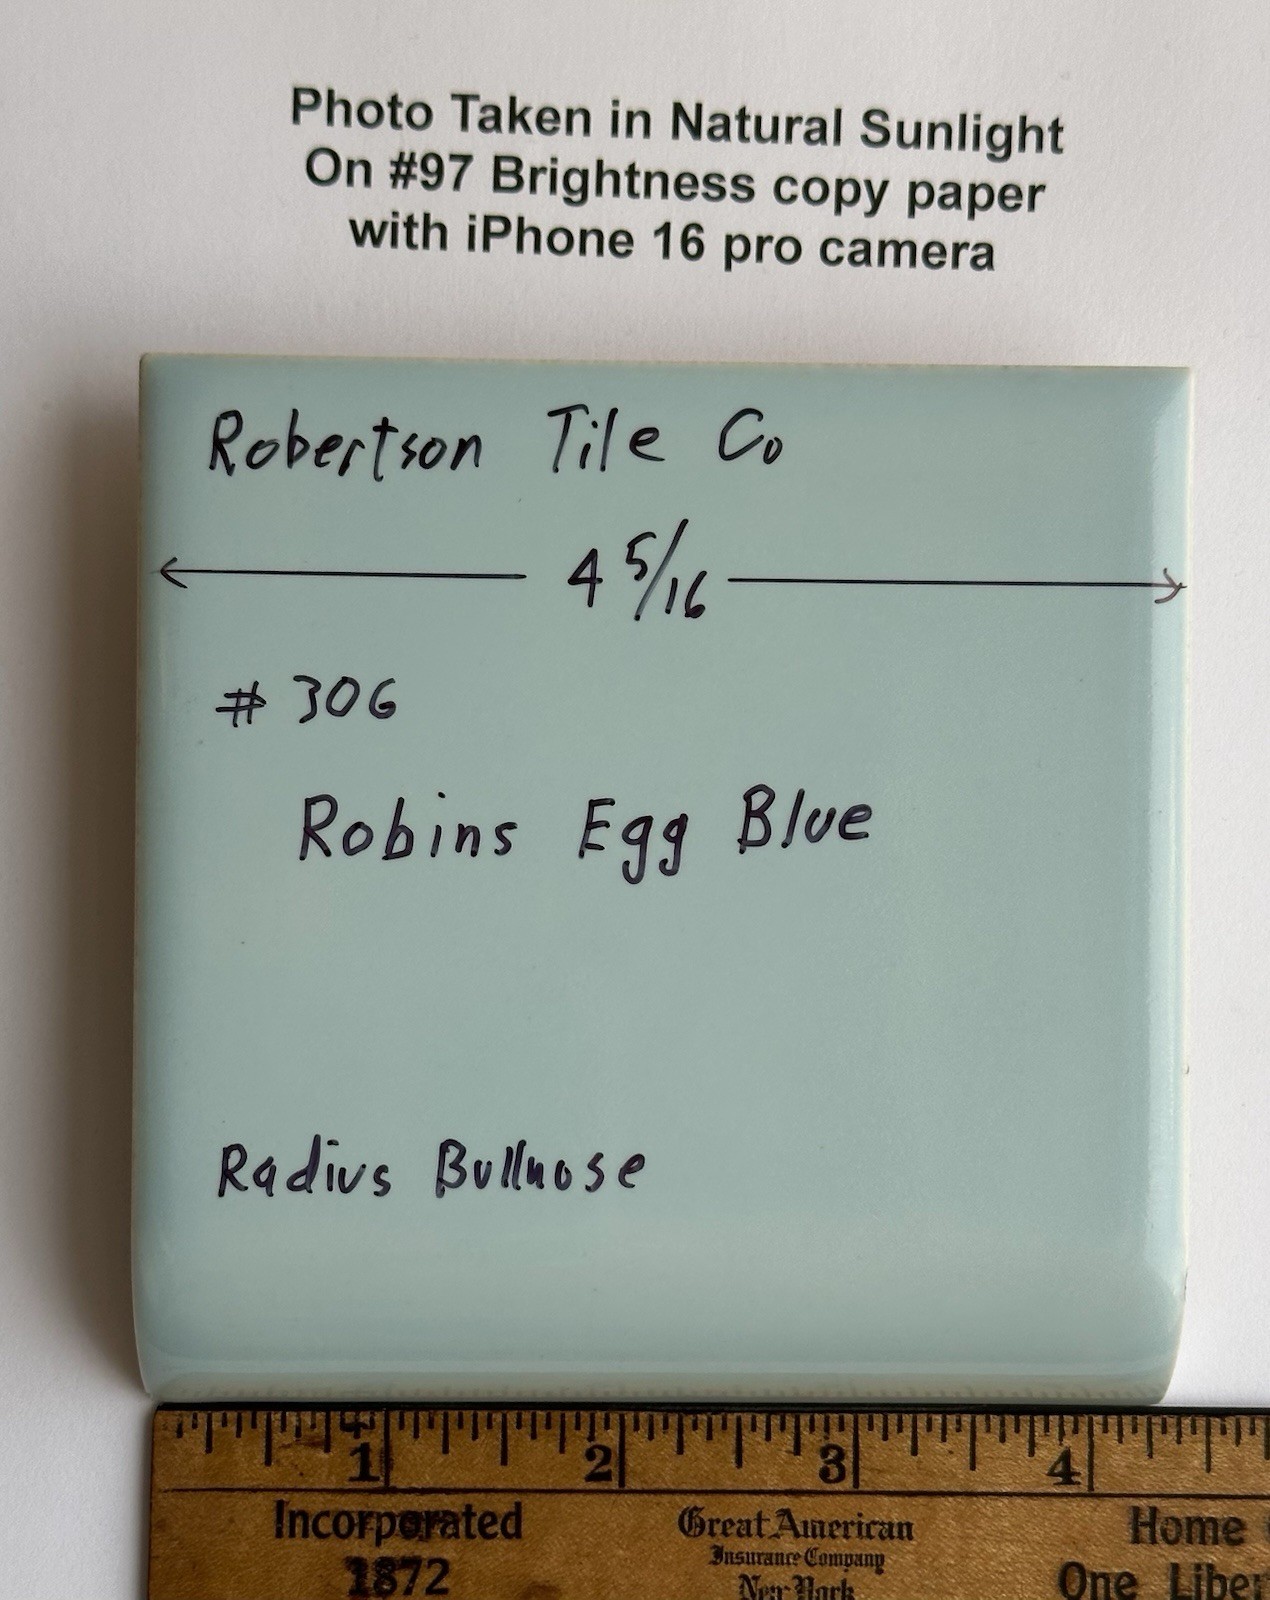 Photo Taken in Natural Sunlight
On #97 Brightness copy paper
with iPhone 16 pro camera
Robertson Tile Co
4 5/16
# 306
Robins Egg Blue
Radius Bullnose
1 2 3 4
Incorporated Great American Home
1872 Insurance Company One
New York